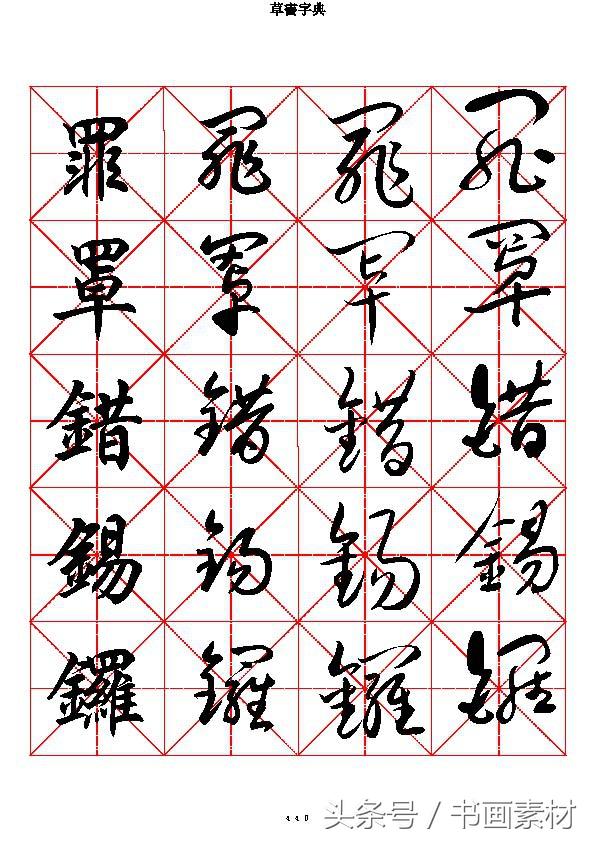 草書字典
罪 罪 罪 罪
罩 罩 罩 罩
錯 錯 錯 錯
錫 錫 錫 錫
鑼 鑼 鑼 鑼
440
头条号 / 书画素材